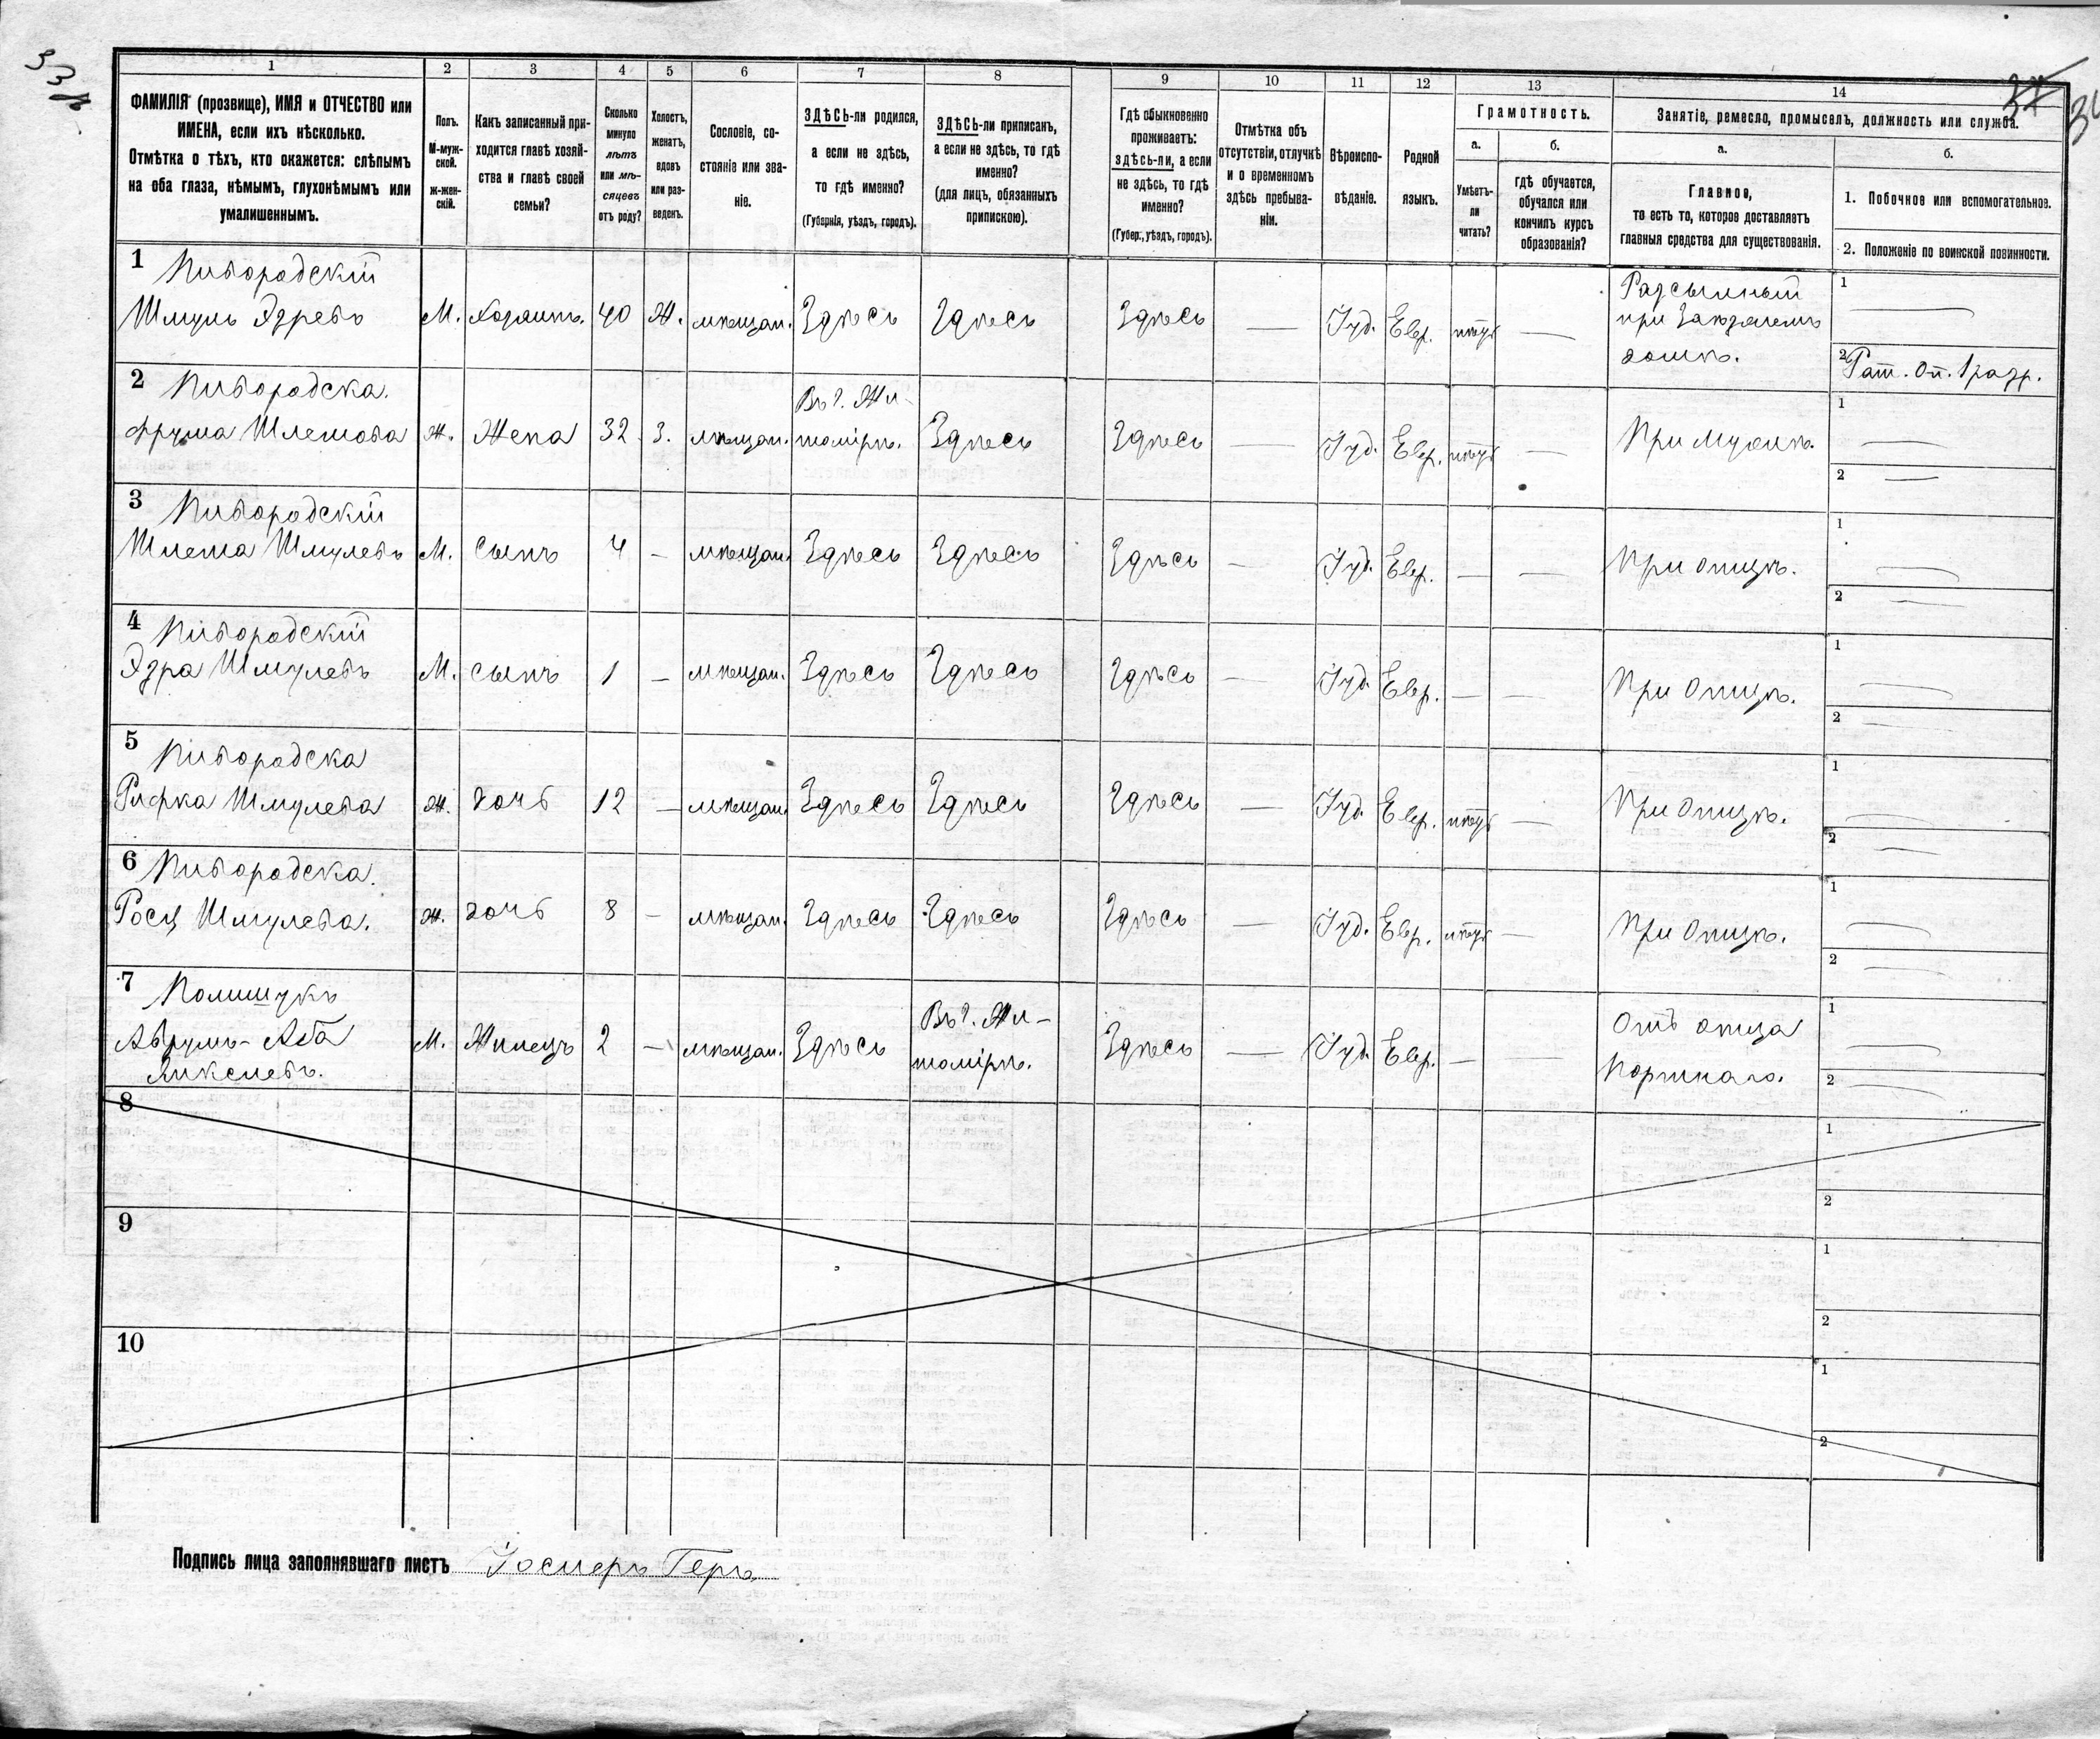 33 37 34
1 2 3 4 5 6 7 8 9 10 11 12 13 14
ФАМИЛІЯ (прозвище), ИМЯ и ОТЧЕСТВО или
ИМЕНА, если ихъ нѣсколько.
Отмѣтка о тѣхъ, кто окажется: слѣпымъ
на оба глаза, нѣмымъ, глухонѣмымъ или
умалишеннымъ.
Полъ.
М-муж-
ской.
ж-жен-
скій.
Какъ записанный при-
ходится главѣ хозяй-
ства и главѣ своей
семьи?
Сколько
минуло
лѣтъ
или мѣ-
сяцевъ
отъ роду?
Холостъ,
женатъ,
вдовъ
или раз-
веденъ.
Сословіе, со-
стояніе или зва-
ніе.
ЗДѢСЬ-ли родился,
а если не здѣсь,
то гдѣ именно?
(Губернія, уѣздъ, городъ).
ЗДѢСЬ-ли приписанъ,
а если не здѣсь, то гдѣ
именно?
(для лицъ, обязанныхъ
припискою).
Гдѣ обыкновенно
проживаетъ:
ЗДѢСЬ-ЛИ, а если
не здѣсь, то гдѣ
именно?
(Губер., уѣздъ, городъ).
Отмѣтка объ
отсутствіи, отлучкѣ
и о временномъ
здѣсь пребыва-
ніи.
Вѣроиспо-
вѣданіе.
Родной
языкъ.
Грамотность.
а. б.
Умѣетъ-
ли
читать?
гдѣ обучается,
обучался или
кончилъ курсъ
образованія?
Занятіе, ремесло, промыселъ, должность или служба.
а. б.
Главное,
то есть то, которое доставляетъ
главныя средства для существованія.
1. Побочное или вспомогательное.
2. Положеніе по воинской повинности.
1 Пивородскій
Шмуль Эзревъ М. хозяинъ. 40 Ж. мѣщан. Здѣсь Здѣсь Здѣсь — Іуд. Евр. нѣтъ —
Разсыльный
при
домѣ.
1 —
2 Рат. оп. 1 разр.
2 Пивородска.
Фрума Шлемова Ж. Жена 32 З. мѣщан. Въ г. Жи-
томірѣ. Здѣсь Здѣсь — Іуд. Евр. нѣтъ — При мужѣ. 1 — 2 —
3 Пивородскій
Шлема Шмулевъ М. Сынъ 4 — мѣщан. Здѣсь Здѣсь Здѣсь — Іуд. Евр. — — При отцѣ. 1 — 2 —
4 Пивородскій
Эзра Шмулевъ М. сынъ 1 — мѣщан. Здѣсь Здѣсь Здѣсь — Іуд. Евр. — — При отцѣ. 1 — 2 —
5 Пивородска
Рифка Шмулева Ж. дочь 12 — мѣщан. Здѣсь Здѣсь Здѣсь — Іуд. Евр. нѣтъ — При отцѣ. 1 — 2 —
6 Пивородска.
Шмулева. Ж. дочь 8 — мѣщан. Здѣсь Здѣсь Здѣсь — Іуд. Евр. нѣтъ — При отцѣ. 1 — 2 —
7 Полищукъ
Аврумъ-Аба
Янкелевъ. М. Жилецъ 2 — мѣщан. Здѣсь Въ г. Жи-
томірѣ. Здѣсь — Іуд. Евр. — —
Отъ отца
Портного. 1 — 2 —
8 1 2
9 1 2
10 1 2
Подпись лица заполнявшаго листъ